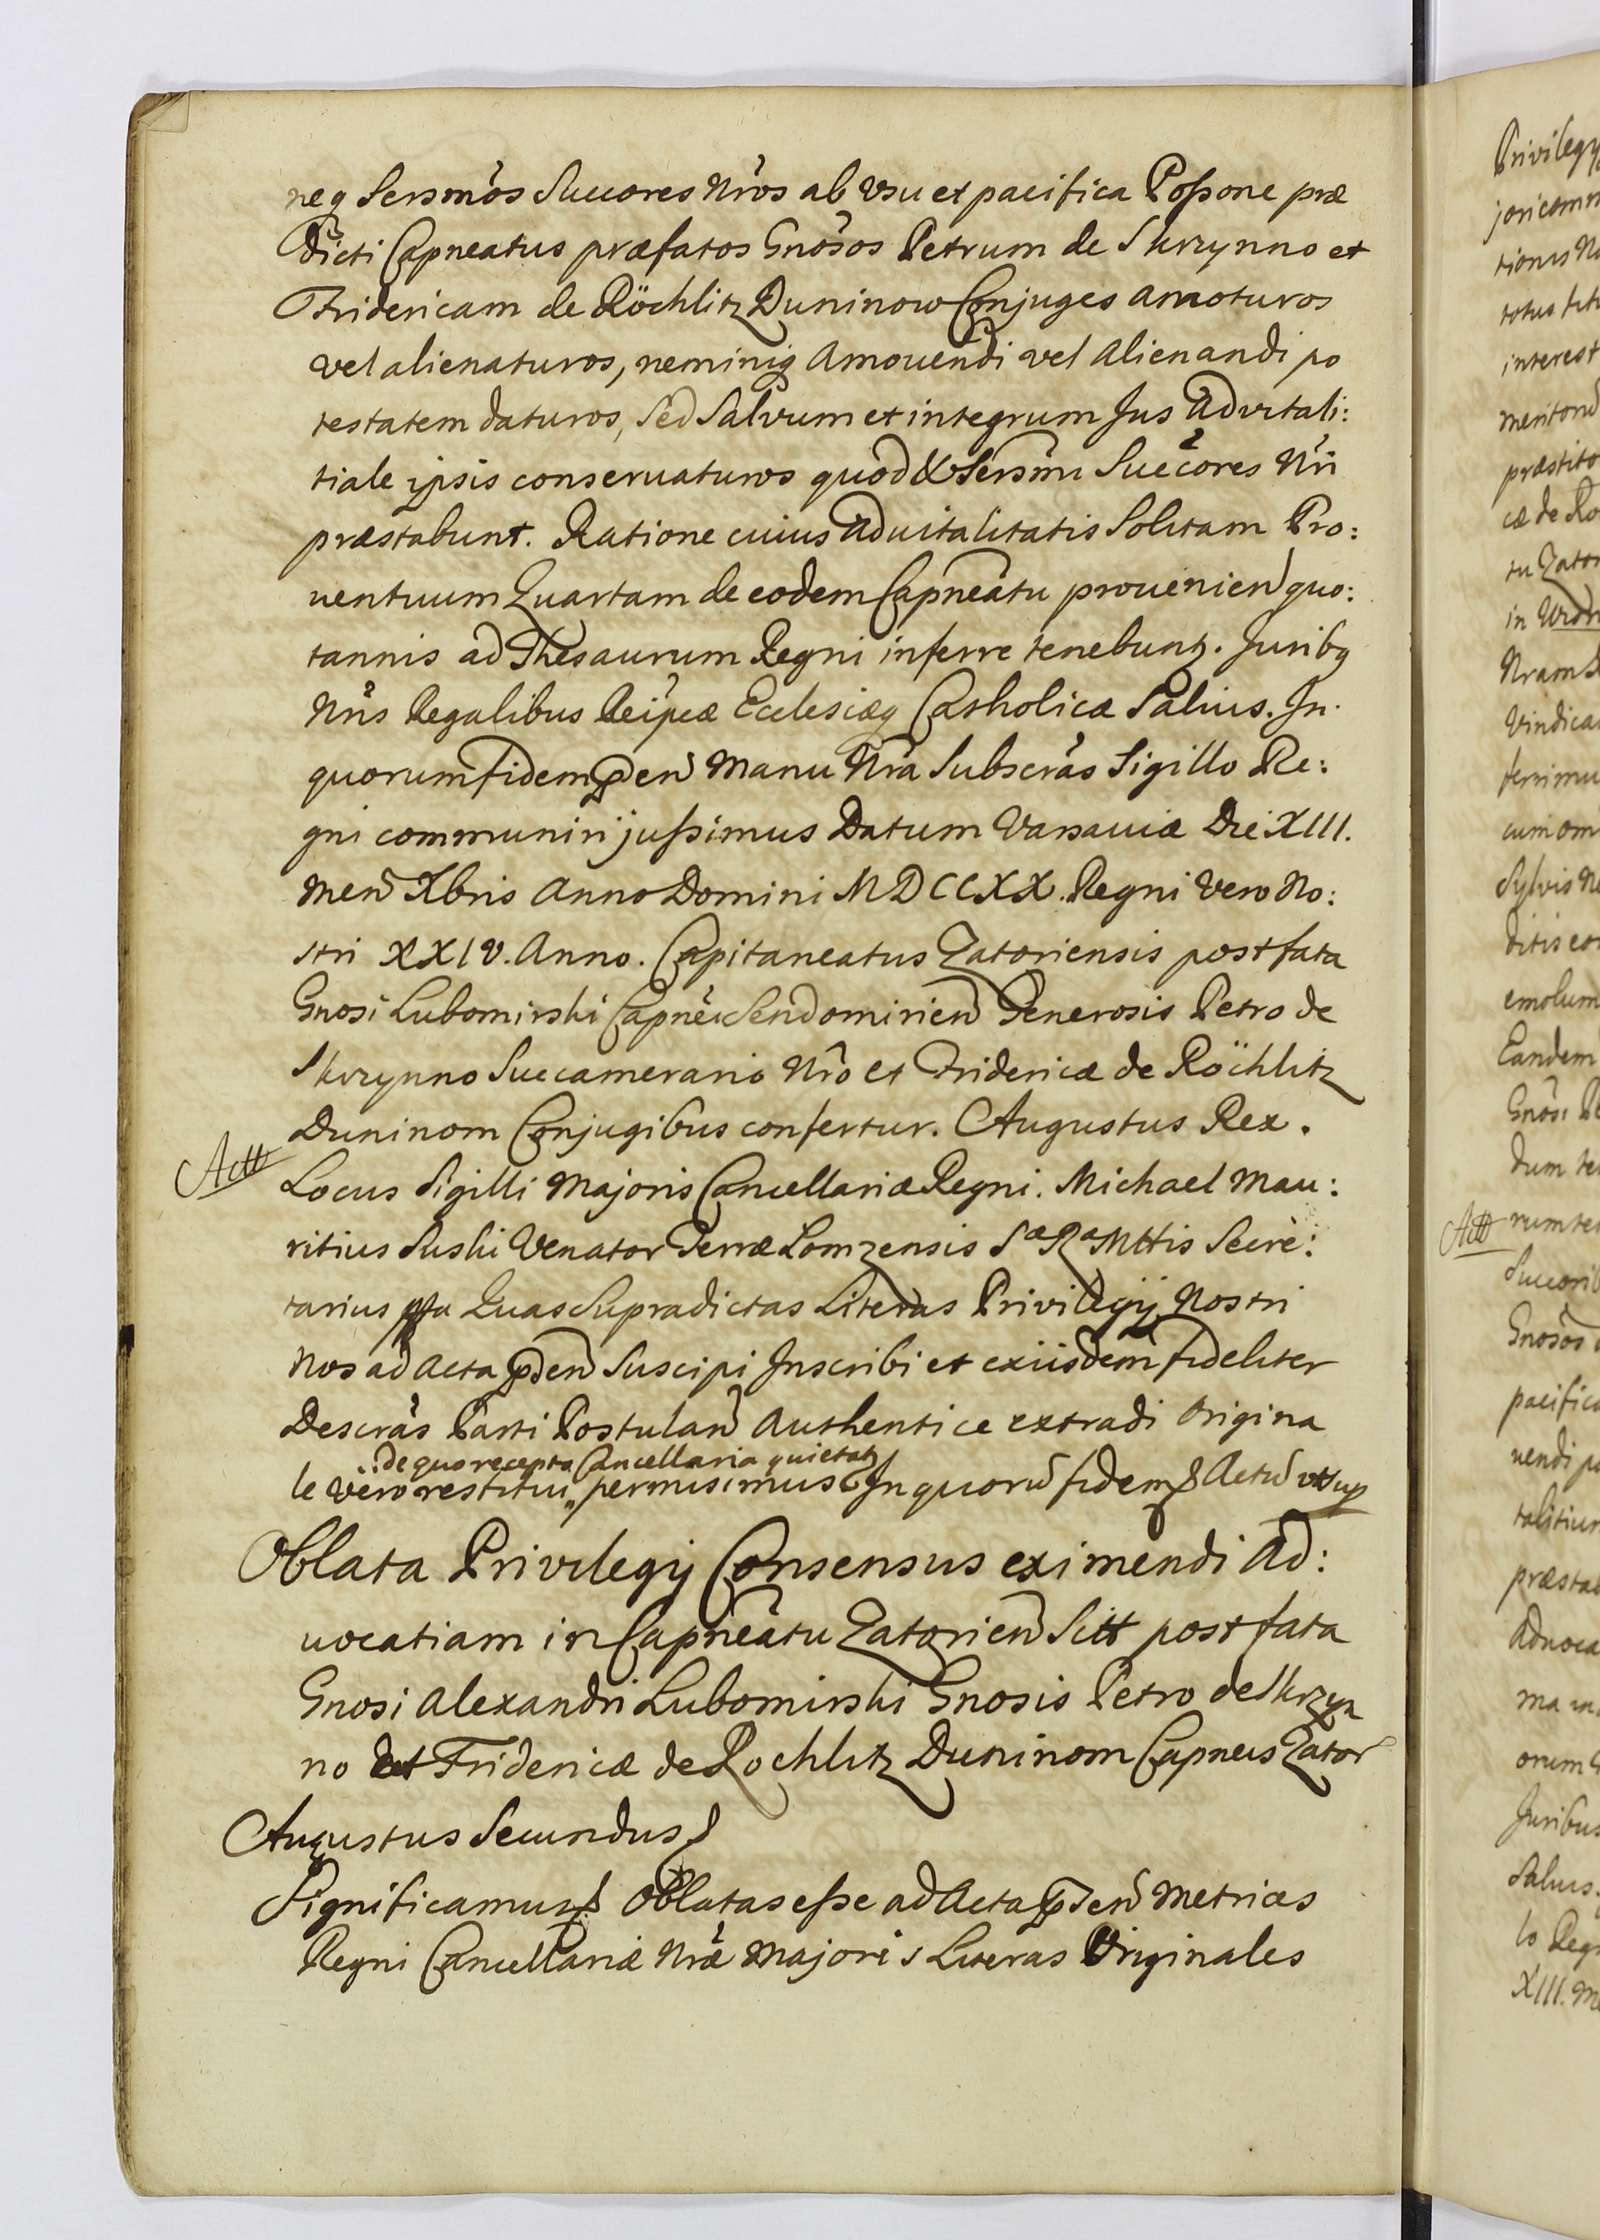 neq Sersmôs Succores Nrôs ab Usu et pacifica Poßone præ
dicti Capneatus præfatos Gnôsos Petrum de Skrzynno et
Fridericam de Röchlitz Duninow Conjuges amoturos
vel alienaturos, neminiq Amouendi vel Alienandi po
testatem daturos, Sed Salvum et integrum Jus Advitali:
tiale ipsis conservaturos quod & Sersmi Succores Nri
præstabunt. Ratione cuius Aduitalitatis Solitam Pro:
uentuum Quartam de eodem Capneatu prouenien quo:
tannis ad Thesaurum Regni inferre tenebunt. Juribq
Nris Regalibus Reipcæ Ecclesiæq Catholicæ Saluis. In
quorum fidem pñ Manu Nra Subscras Sigillo Re:
gni communiri jußimus Datum Varsauiæ Die XIII.
Men Xbris Anno Domini MDCCXX. Regni Vero No:
stri XXIV. Anno. Capitaneatus Zatoriensis post fata
Gnosi Lubomirski Capnei Sendomirien Generosis Petro de
Skrzynno Succamerario Nrô et Fridericæ de Röchlitz
Duninom Conjugibus confertur. Augustus Rex.
Actt
Locus Sigilli Majoris Cancellariæ Regni. Michael Mau:
ritius Suski Venator Terræ Lomzensis Sæ Ræ Mttis Secre:
tarius Quas Supradictas Literas Privilegij Nostri
Nos ad Acta pñ Suscipi Inscribi et exiisdem fideliter
Descras Parti Postulan Authentice extradi Origina
de quo recepta Cancellaria quietat
le vero restitui permisimus In quorũ fidem Actũ ut sup
Oblata Privilegij Consensus eximendi Ad:
uocatiam in Capneatu Zatorien Sitt post fata
Gnosi Alexandri Lubomirski Gnosis Petro de Skrzyn
no et Fridericæ de Rochlitz Duninom Capneis Zator
Augustus Secundus
Significamus Oblatas eße ad Acta pñ Metrices
Regni Cancellariæ Nræ Majoris Literas Originales